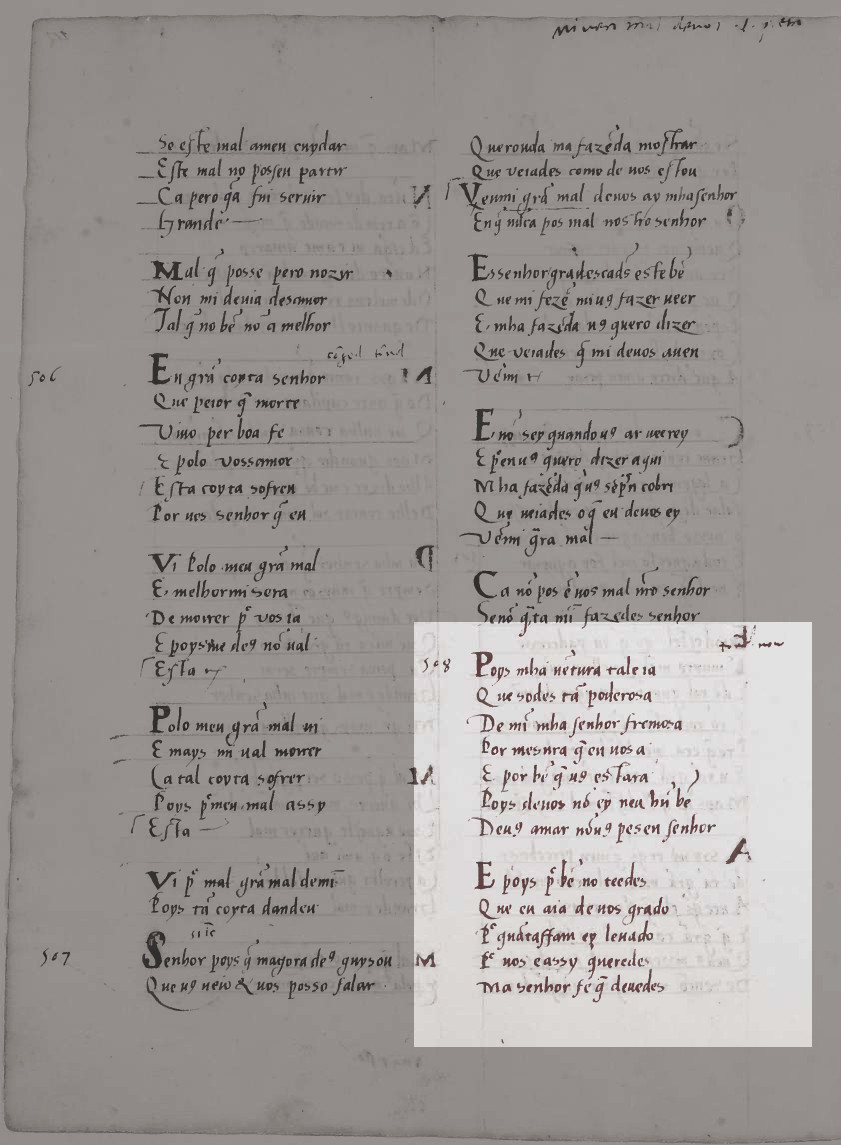 Se este mal a meu cuydar
Este mal nō posseu partir
Ca pero q̄ a fui seruir
Grande
Mal q̄ posse pero nozir
Non mi deuia desamor
Tal q̄ no bē nō a melhor
506
En grā coyta senhor
Que peior q̄ morte
Viuo per boa fe
E polo vossamor
Esta coyta sofreu
Por uos senhor q̄ eu
Vi Polo meu grā mal
E melhor mi sera
De moirer p̄ vos ia
E poys me deꝰ nō ual
Esta
Polo meu grā mal ui
E mays mī ual morrer
Ca tal coyta sofrer
Poys p̄ meu mal assy
Esta
Vi p̄ mal grā mal demī
Poys tā coyta dandeu
507
Senhor poys q̄ magora deꝰ guysou
Que uꝰ veio & uos posso falar
Quero uꝰ la mha fazēda mostrar
Que ueiades como de uos estou
Venmi grā mal deuos ay mha senhor
En q̄ nūca pos mal nostro senhor
E ssenhor gradescadꝰ este bē
Que mi fezē miuꝰ fazer ueer
E mha fazēda uꝰ quero dizer
Que ueiades q̄ mi deuos auen
Vēm
E nō sey quando uꝰ ar ueerey
E p̄ en uꝰ quero dizer aqui
Mha fazēda q̄ uꝰ sēp̄ encobri
Que ueiades o q̄ eu deuos ey
Vēmi grā mal
Ca nō pos ē uos mal nr̄o senhor
Senō q̄ ta mī fazedes senhor
508
Poys mha uētura tal e ia
Que sodes tā poderosa
De mī mha senhor fremosa
Por mesura q̄ en uos a
E por bē q̄ uꝰ estara
Poys deuos nō ey neū bē
Deuꝰ amar nō uꝰ pes en senhor
E poys p̄ bē no teedes
Que eu aia de uos grado
P̄ quātaffam ey leuado
P̄ uos e assy queredes
Ma senhor fe q̄ deuedes